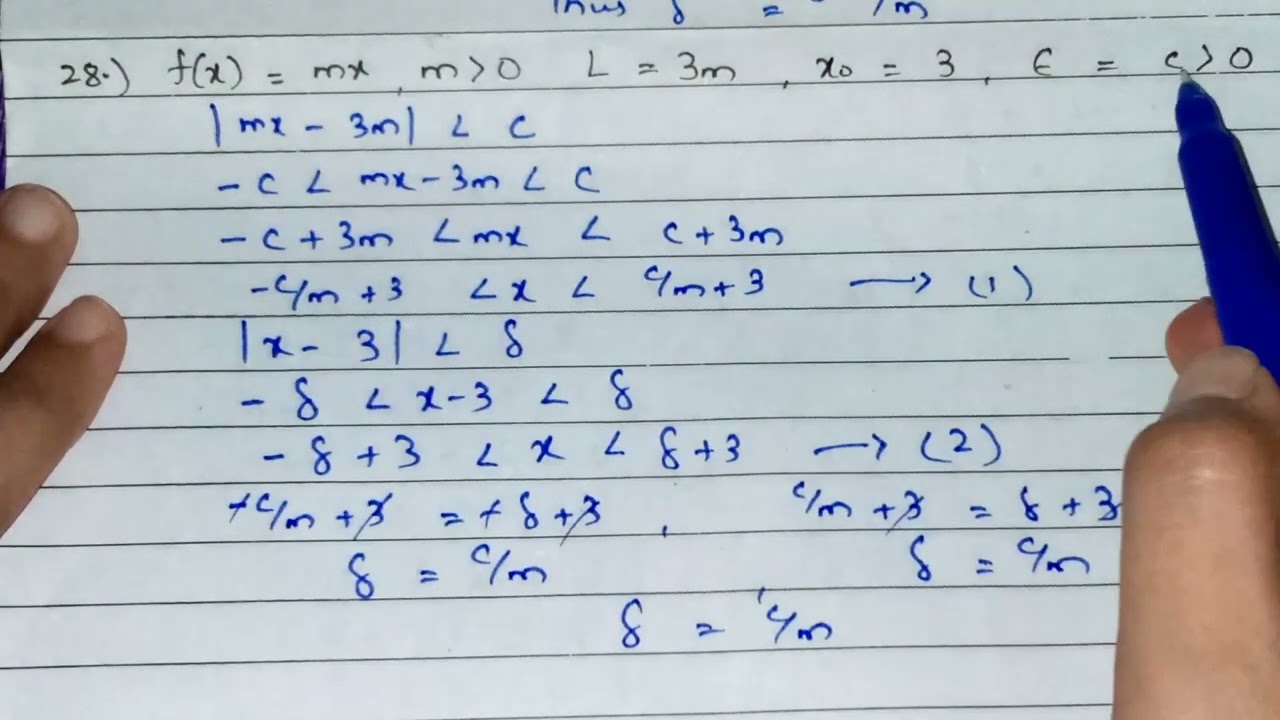 Thus δ = /m
28.) f(x) = mx, m>0 L = 3m, x₀ = 3, ϵ = c>0
|mx - 3m| < c
- c < mx - 3m < c
- c + 3m < mx < c + 3m
- c/m + 3 < x < c/m + 3 → (1)
|x - 3| < δ
- δ < x - 3 < δ
- δ + 3 < x < δ + 3 → (2)
+ c/m + 3 = + δ + 3 , c/m + 3 = δ + 3
δ = c/m δ = c/m
δ = c/m